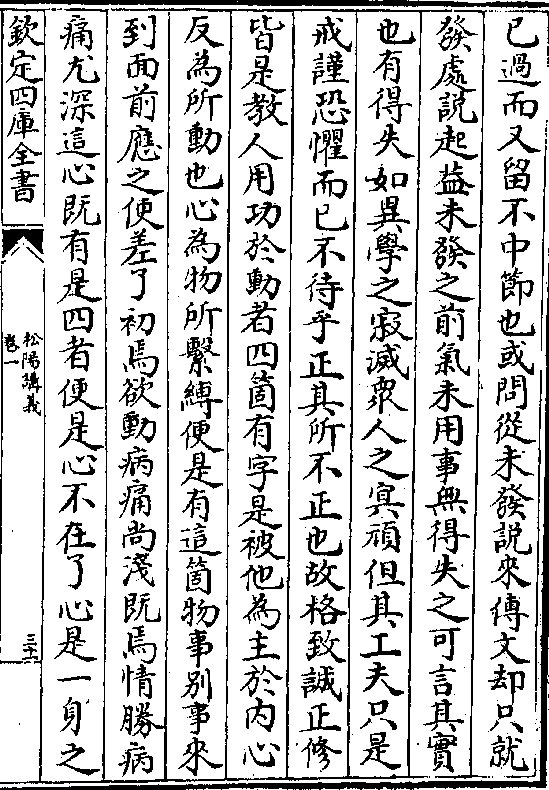 已過而又留不中節也或問從未發說來傳文却只就
發處說起益未發之前氣未用事無得失之可言其實
也有得失如異學之寂滅衆人之冥頑但其工夫只是
戒謹恐懼而已不待乎正其所不正也故格致誠正修
皆是教人用功於動者四箇有字是被他為主於内心
反為所動也心為物所繫縛便是有這箇物事别事來
到面前應之便差了初焉欲動病痛尚淺既焉情勝病
痛尤深這心既有是四者便是心不在了心是一身之
欽定四庫全書
松陽講義
卷一